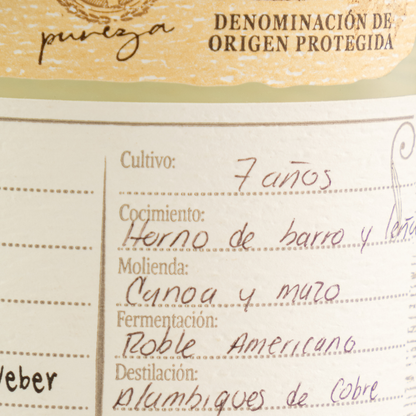 pureza
DENOMINACIÓN DE
ORIGEN PROTEGIDA
Cultivo: 7 años
Cocimiento:
Horno de barro y leña
Molienda:
Canoa y mazo
Fermentación:
Roble Americano
Weber
Destilación:
Alambiques de Cobre